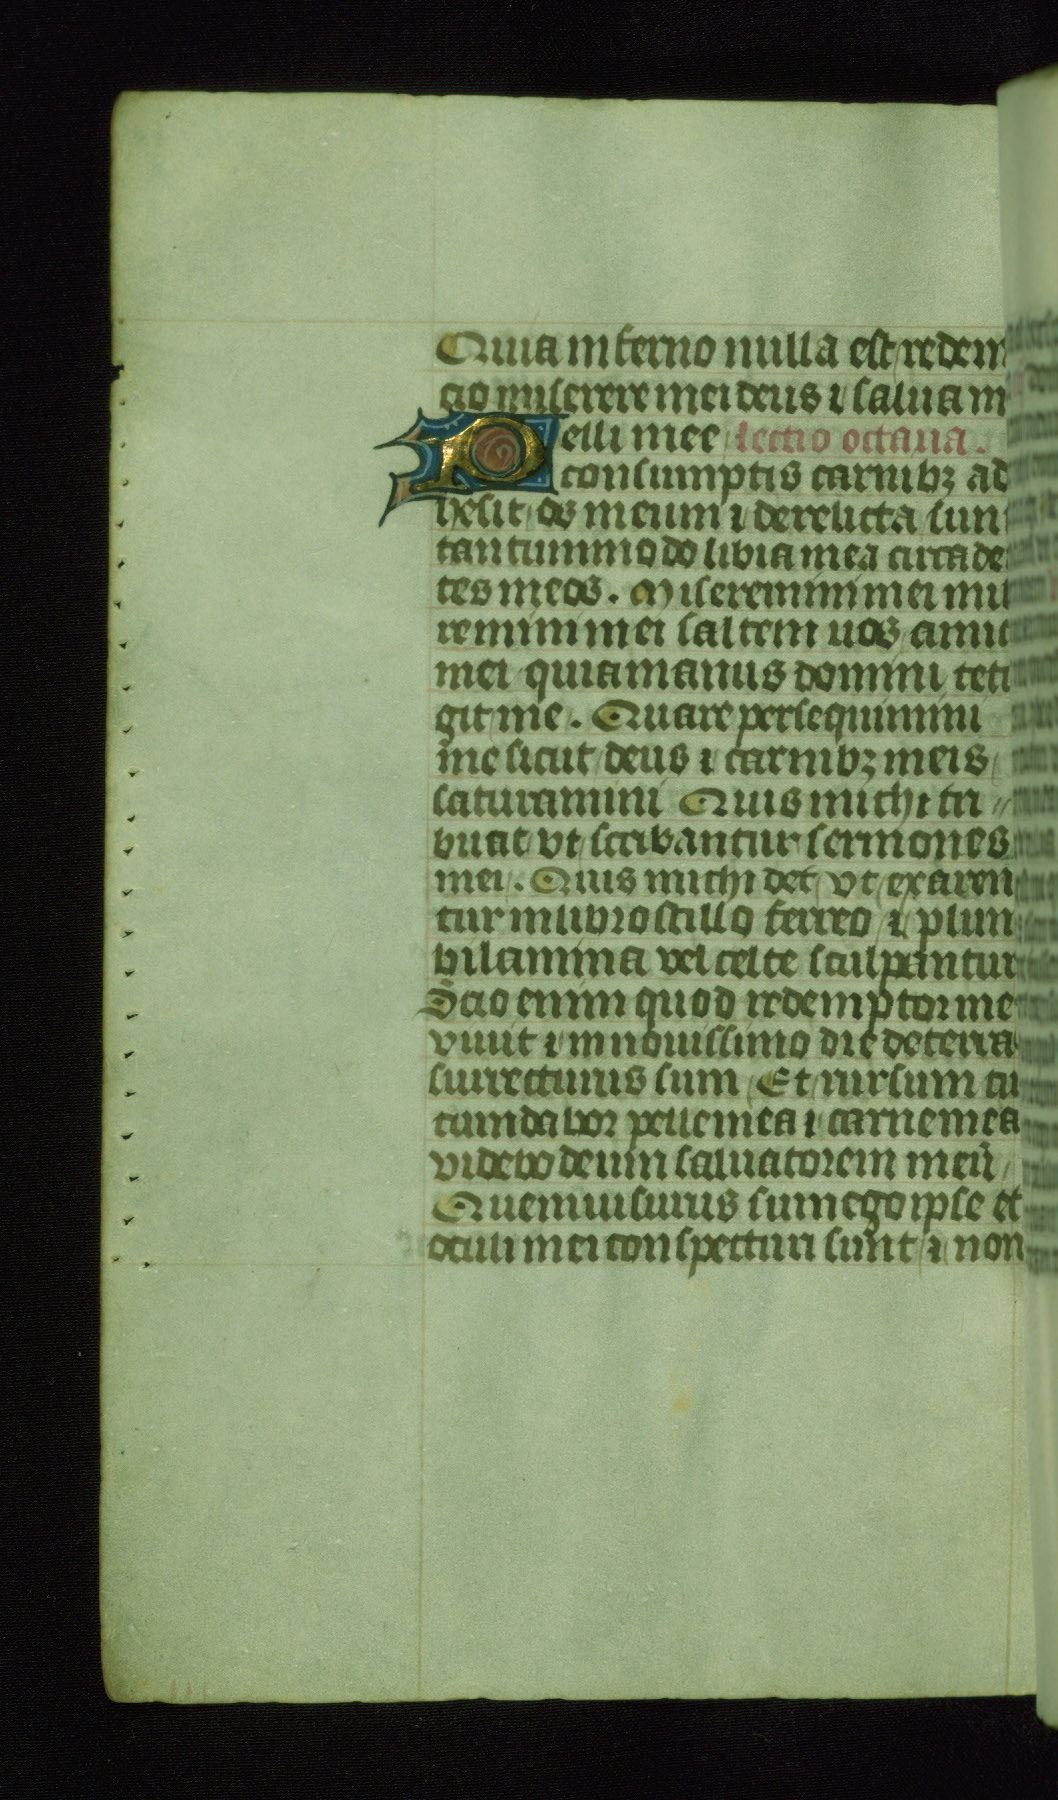 Quia in ferno nulla est redem
cio miserere mei deus ⁊ salua m
Pelli mee lectio octaua.
consumptis carnibꝫ ad
hesit os meum ⁊ derelicta sun
tantummodo libia mea circa de
tes meos. Miseremini mei mi
remini mei saltem uos amic
mei quia manus domini teti
git me. Quare persequimini
me sicut deus ⁊ carnibꝫ meis
saturamini Quis michi tri
buat vt scribantur sermones
mei. Quis michi det vt exaren
tur in libro stillo ferreo ⁊ plun
bi lamina vel celte sculpantur
Scio enim quod redemptor me
viuit ⁊ in nouissimo die de terra
surrecturus sum Et rursum cir
cumdabor pelle mea ⁊ carne mea
videbo deum saluatorem meū
Quem uisurus sum ego ipse et
oculi mei conspecturi sunt ⁊ non